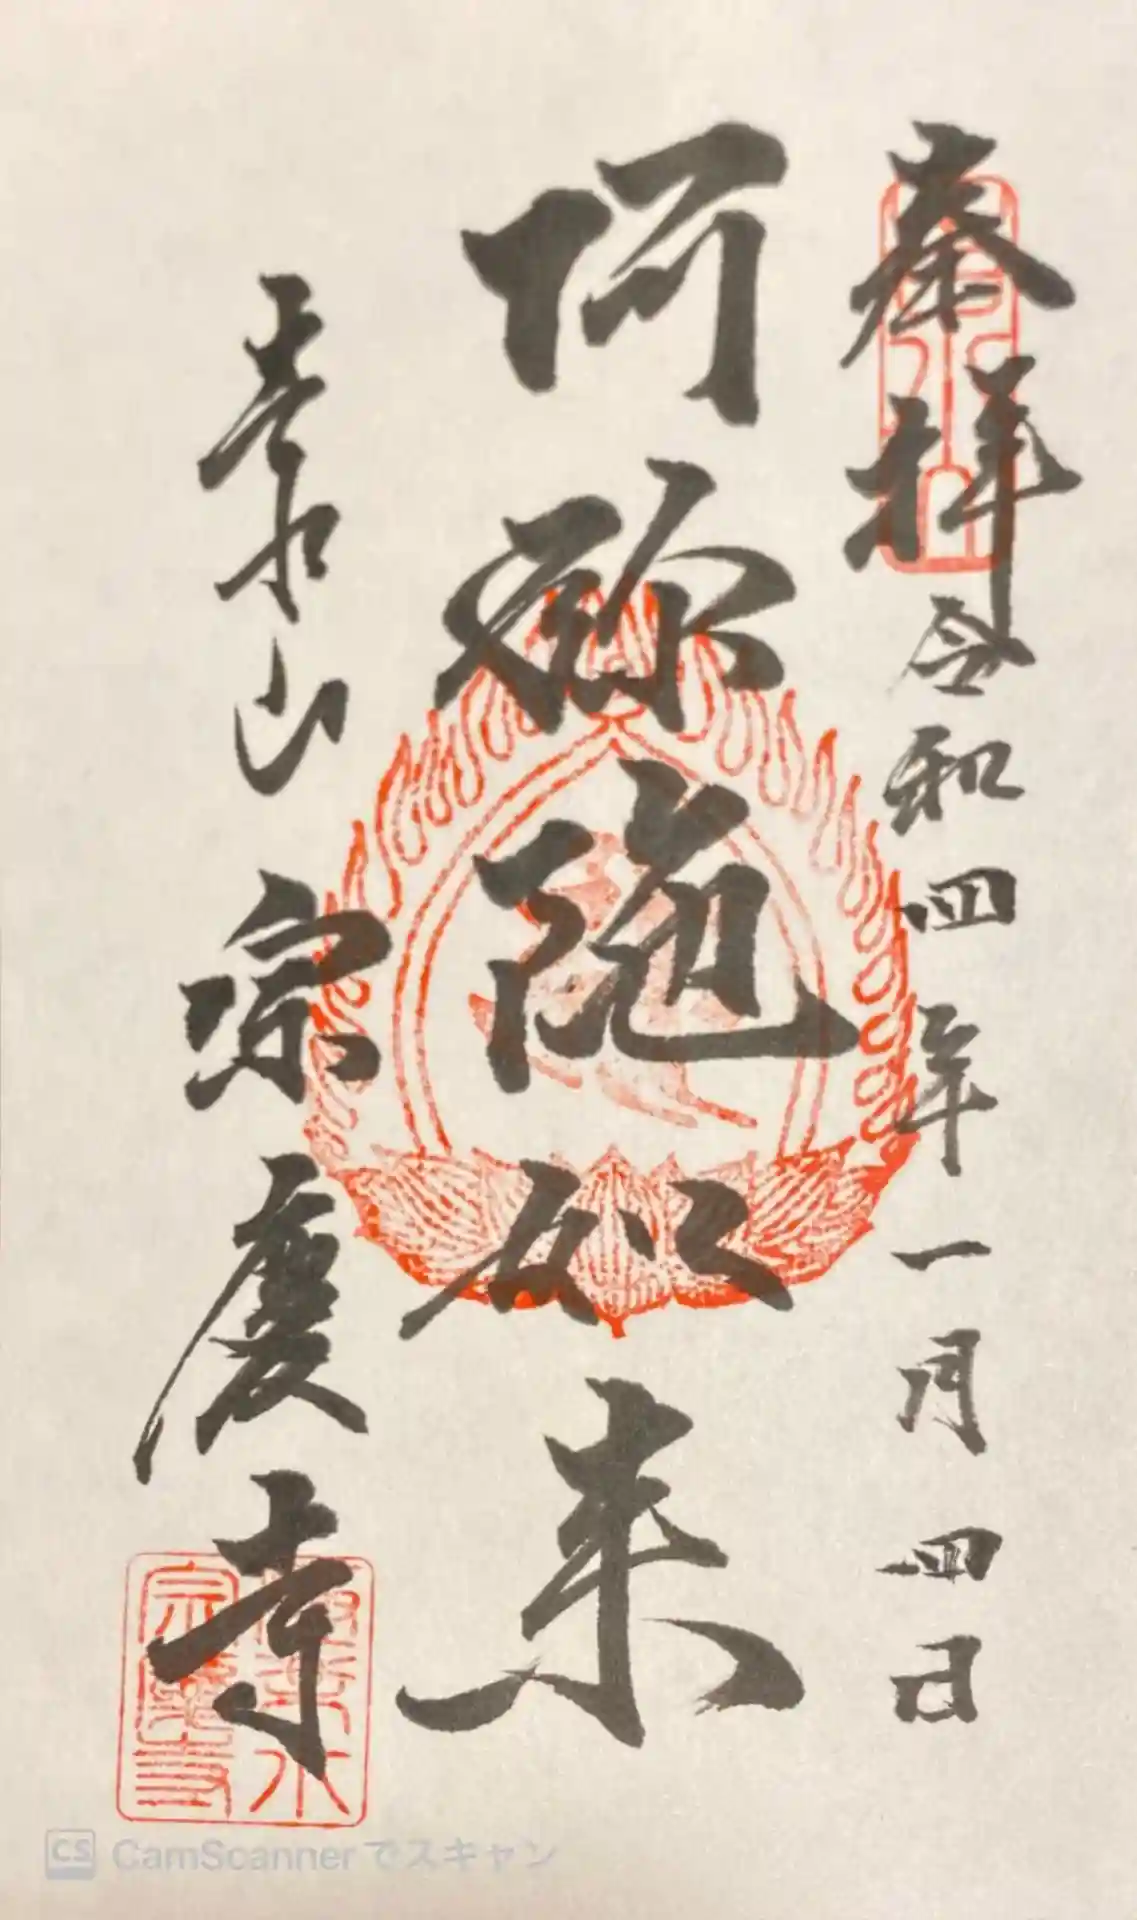 奉拝 令和四年一月四日
阿弥陀如来
吉水山 宗慶寺
極楽水
宗慶寺
CS CamScannerでスキャン